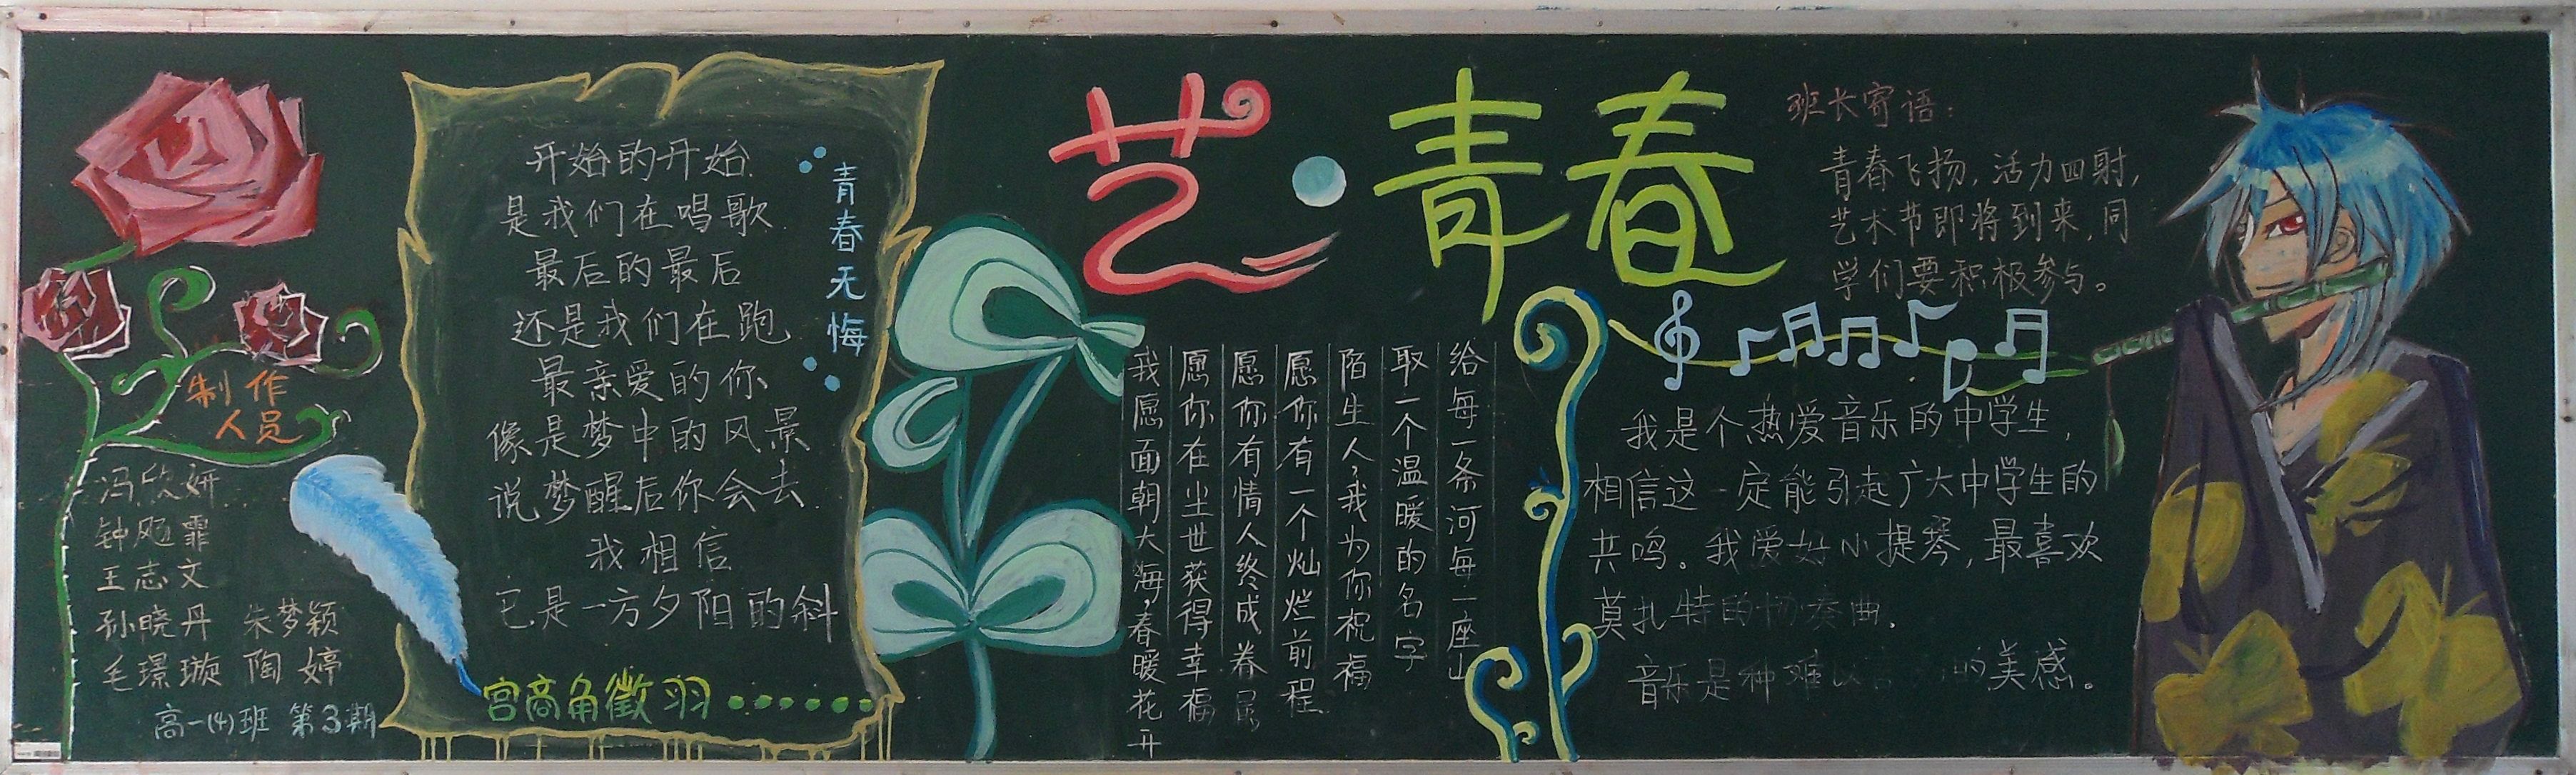 制作
人员
冯欣妍
钟飐霏
王志文
孙晓丹 朱梦颖
毛璟璇 陶婷
高一(4)班 第3期
青春无悔
开始的开始
是我们在唱歌
最后的最后
还是我们在跑
最亲爱的你
像是梦中的风景
说梦醒后你会去
我相信
它是一方夕阳的斜
宫商角徵羽......
艺·青春
给每一条河每一座山
取一个温暖的名字
陌生人,我为你祝福
愿你有一个灿烂前程
愿你有情人终成眷属
愿你在尘世获得幸福
我愿面朝大海,春暖花开
班长寄语:
青春飞扬,活力四射,
艺术节即将到来,同
学们要积极参与。
我是个热爱音乐的中学生,
相信这一定能引起广大中学生的
共鸣。我爱好小提琴,最喜欢
莫扎特的协奏曲.
音乐是种难以 的美感。